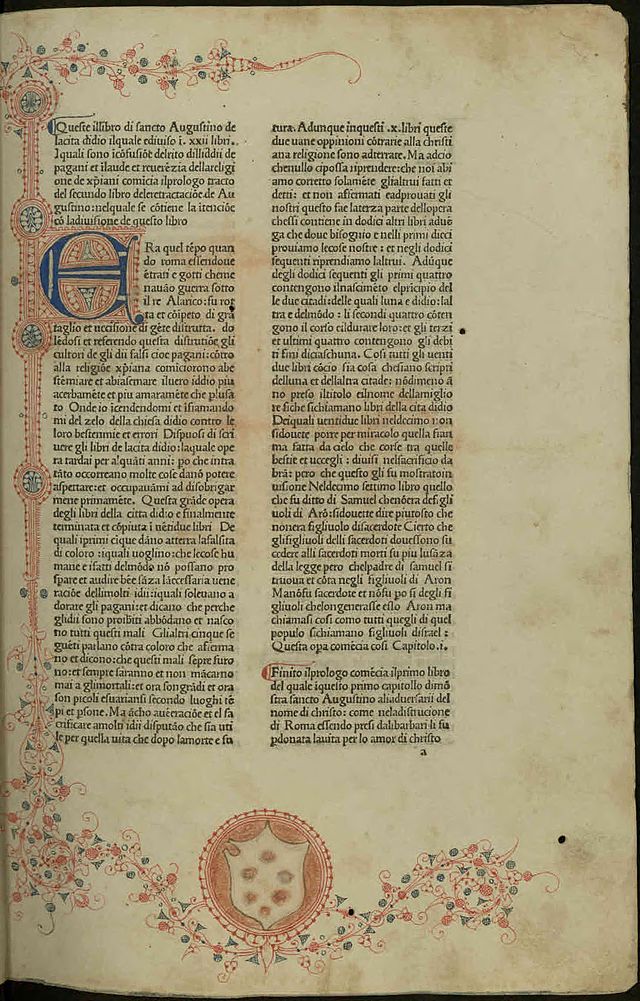 Queste illibro di sancto Augustino de
lacita didio ilquale ediuiso ĩ. xxii libri..
Iquali sono icõfusiõe delrito dilliddii de
pagani et ilaude et reuerẽzia dellareligi
one de xp̃iani comicia ilprologo tracto
del secundo libro deleretractaciõe.de Au
gustino:nelquale se cõtiene la itenciõe
cõ ladiuisione de questo libro
ERa quel tẽpo quan
do roma essendoue
ẽtrati e gotti cheme
nauão guerra sotto
il re Alarico:fu rot
ta et cõipeto di grã
taglio et uccisione di gẽte distrutta. do
lẽdosi et referendo questa distrutiõe gli
cultori de gli dii falsi cioe pagani:cõtro
alla religiõe xp̃iana comiciorono abe
stẽmiare et abiasemare iluero iddio piu
acerbamẽte et piu amaramẽte che plusa
to Onde io icendendomi et ifiamando
mi del zelo della chiesa didio contro le
loro bestenmie et errori Dispuosi di scri
uere gli libri de lacita didio:laquale ope
ra tardai per alquãti anni: po che intra
tãto occorreano molte cose danõ potere
aspettare:et occupauãmi ad disobrigar
mene primamẽte. Questa grãde opera
degli libri della citta didio e finalmente
terminata et cõpiuta i uẽtidue libri De
quali iprimi cique dãno atterra lafalsita
di coloro :iquali uoglino:che lecose hu
mane e ifatti delmõdo nõ possano pro
spare et audire bẽe sãza lãcessaria uene
raciõe dellimolti idii:iquali soleuano a
dorare gli pagani:et dicano che perche
glidii sono proibiti abbõdano et nasco
no tutti questi mali Glialtri cinque se
guẽti parlano cõtra coloro che aferma
no et dicono:che questi mali sẽpre furo
no:et sempre saranno et non mãcarno
mai a glimortali:et ora songrãdi et ora
son picoli esuariansi secondo luoghi tẽ
pi et p̃sone. Ma ãcho aueraciõe et el sa
crificare amolti idii disputão che sia uti
le per quella uita che dopo lamorte e fu
tura. Adunque inquesti .x.libri queste
due uane oppinioni cõtrarie alla christi
ana religione sono adterrate. Ma adcio
chenullo cipossa riprendere:che noi abi
amo corretto solamẽte glialtrui fatti et
detti: et non affermati eadprouati gli
nostri questo fae laterza parte dellopera
chessi contiene in dodici altri libri aduẽ
ga che doue bisognio e nelli primi dieci
prouiamo lecose nostre : et negli dodici
sequenti riprendiamo laltrui. Adũque
degli dodici sequenti gli primi quattro
contengono ilnascimẽto elpricipio del
le due citadi:delle quali luna e didio:lal
tra e delmõdo : li secondi quattro cõten
gono il corso eildurare loro:et gli terzi
et ultimi quattro contengono gli debi
ti fini diciaschuna. Cosi tutti gli uenti
due libri cõcio sia cosa chesiano scripti
delluna et dellaltra citade: nõdimeno ã
no preso iltitolo eilnome dellamiglio
re siche sichiamano libri della cita didio
Dei quali uentidue libri neldecimo non
sidouete porre per miracolo quella fiam
ma fatta da cielo che corse tra quelle
bestie et uccegli : diuisi nelsacrificio da
brã: pero che questo gli fu mostratoin
uisione Neldecimo settimo libro quello
che fu ditto di Samuel chenõera de figli
uoli di Arõ:sidouette dire piutosto che
nonera figliuolo disacerdote Cierto che
glifigliuoli delli sacerdoti douessono su
cedere alli sacerdoti morti fu piu lusãza
della legge pero chelpadre di samuel si
truoua et cõta negli figliuoli di Aron
Manõfu sacerdote et nõfu po si degli fi
gliuoli chelongenerasse esso Aron ma
chiamasi cosi como tutti quegli di quel
populo sichiamano figliuoli disrael :
Questa opa comẽcia cosi Capitolo.i.
Finito ilprologo comẽcia ilprimo libro
del quale iquesto primo capitollo dimõ
stra sancto Augustino aliaduersarii del
nome di christo: come neladistrucione
di Roma essendo presi dalibarbari li fu
p̃donata lauita per lo amor di christo
a